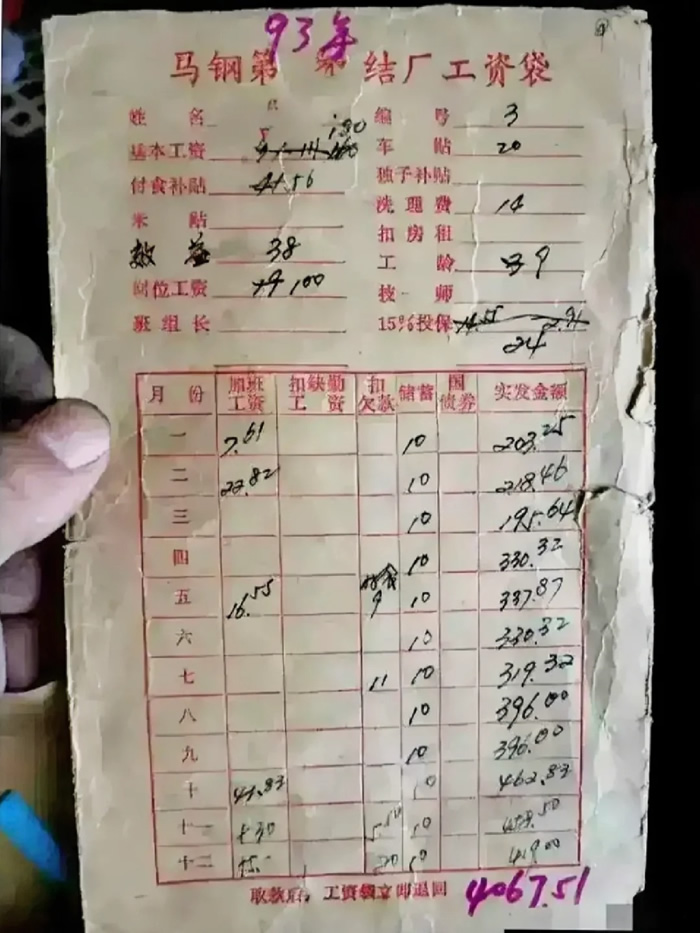 93年
马钢第 结厂工资袋
姓 名 编 号 3
基本工资 车 贴 20
付食补贴 41.56 独子补贴
米 贴 洗理费 14
效益 38 扣房租
岗位工资 100 工 龄 39
班组长 技 师
15%投保 14.55 2.91
24
月 份 加班工资 扣缺勤工资 扣欠款 储蓄 国债券 实发金额
一 7.61 10 203.25
二 22.82 10 218.46
三 10 195.64
四 10 330.32
五 16.55 9 10 337.87
六 10 330.32
七 11 10 319.32
八 10 396.00
九 10 396.00
十 10 462.83
十一 10
十二 20 10 419.00
取款后，工资袋立即退回 4067.51